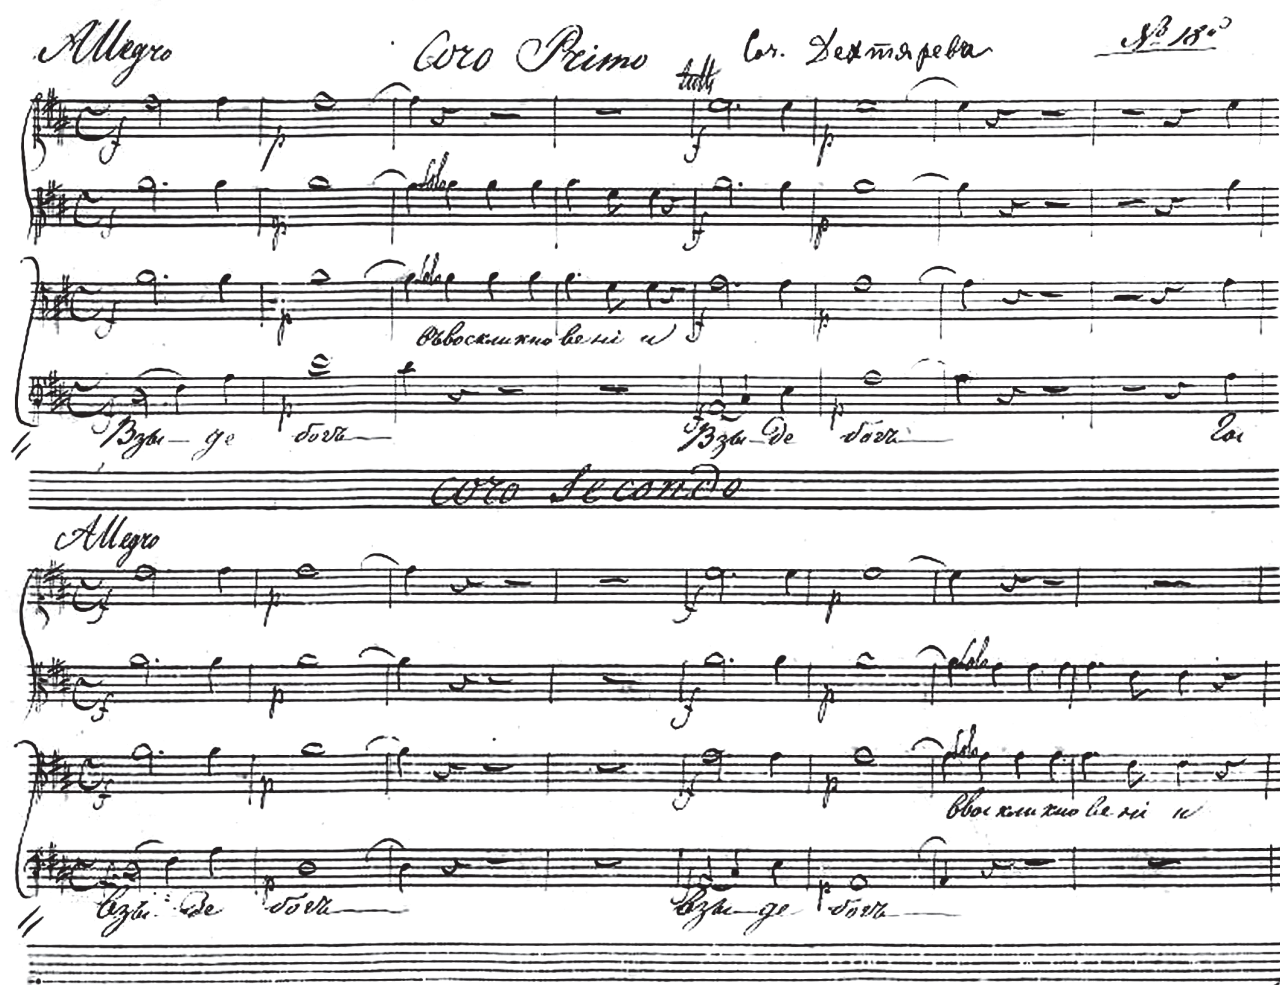 Allegro Coro Primo Соч. Дехтярева № 18й
tutti
f p f p
Solo
f p f p
Solo
f p f p
въвоскликновенiи
f p f p
Взы-де богъ Взы-де богъ
Coro Secondo
Allegro
f p f p
Solo
f p f p
Solo
f p f p
ввоскликновенiи
f p f p
взы-де богъ взы-де богъ